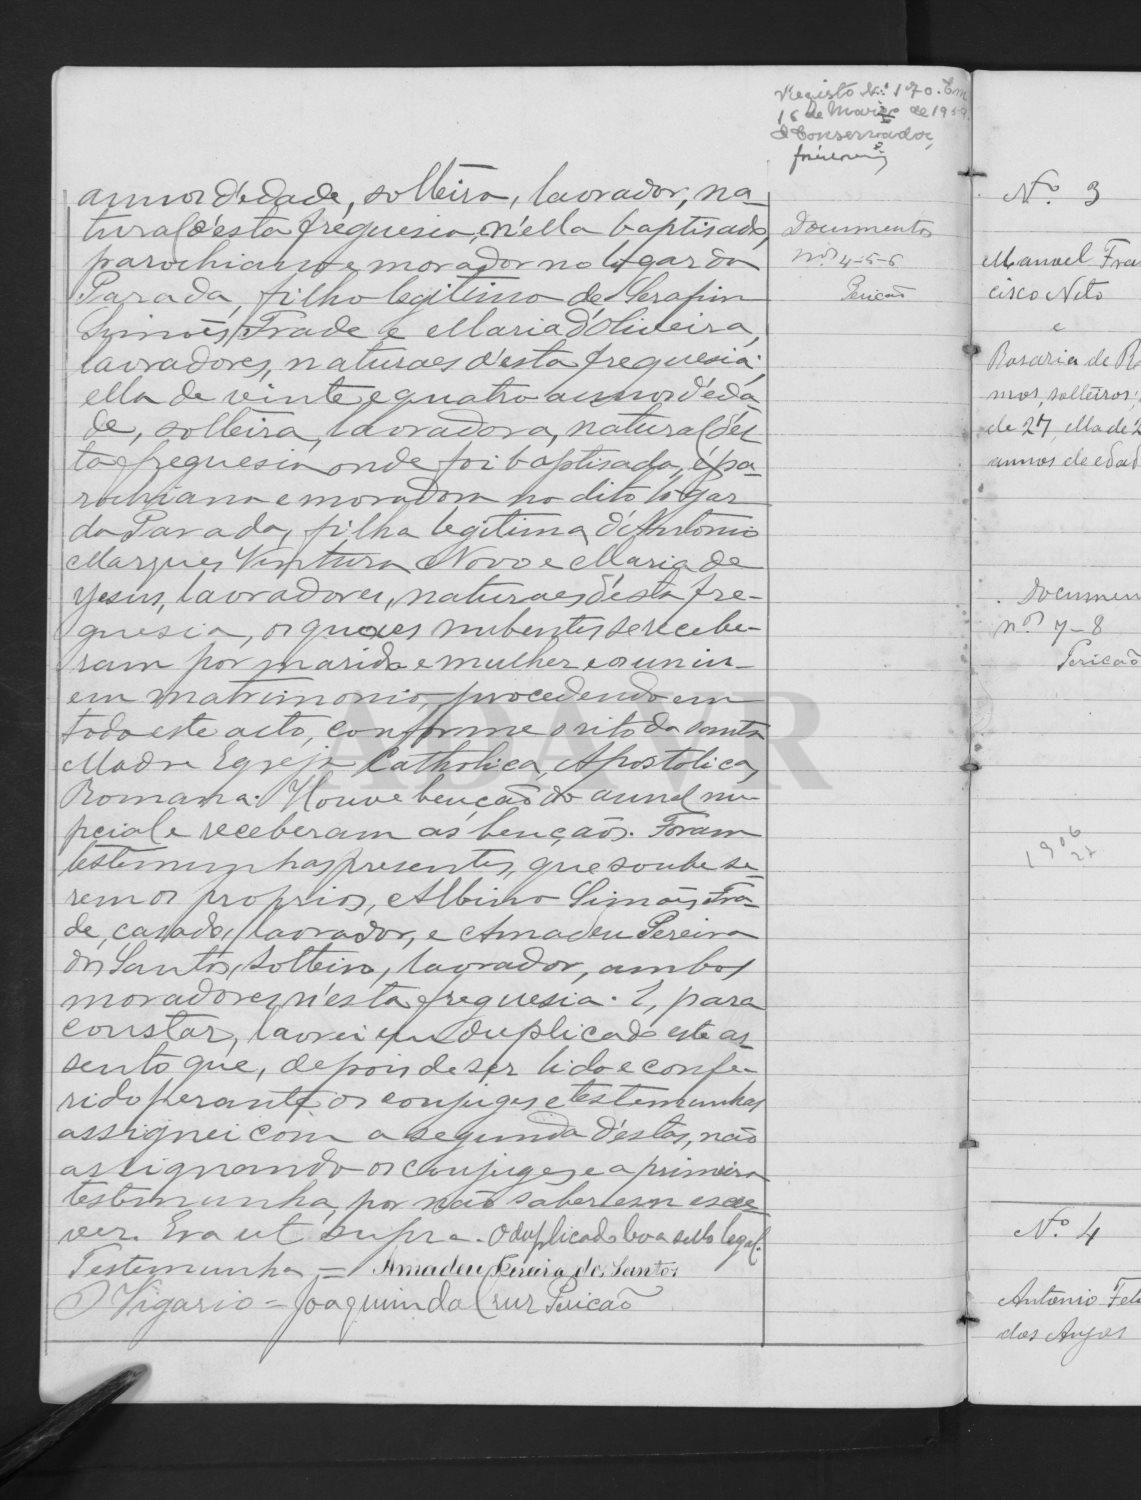 Registo N.º 170. Em
16 de Março de 19
O Conservador,
annos d'edade, solteiro, lavrador, na-
tural d'esta freguesia, n'ella baptisado,
parochiano e morador no logar da
Parada, filho legitimo de Serafim
Simões Frade e Maria d'Oliveira,
lavradores, naturaes d'esta freguesia;
ella de vinte e quatro annos d'eda-
de, solteira, lavradora, natural d'es-
ta freguesia onde foi baptisada, é pa-
rochiana e moradora no dito logar
da Parada, filha legitima d'Antonio
Marques Ventura Novo e Maria de
Jesus, lavradores, naturaes d'esta fre-
guesia, os quaes nubentes se recebe-
ram por marido e mulher e os uni
em matrimonio, procedendo em
todo este acto, conforme o rito da santa
Madre Egreja Catholica, Apostolica,
Romana. Houve benção do annel nu-
pcial e receberam as bençãos. Foram
testemunhas presentes, que soube se-
rem os proprios, Albino Simões Fra-
de, casado, lavrador, e Amadeu Pereira
dos Santos, solteiro, lavrador, ambos
moradores n'esta freguesia. E, para
constar, lavrei em duplicado este as-
sento que, depois de ser lido e confe-
rido perante os conjuges e testemunhas
assignei com a segunda d'estas, não
assignando os conjuges e a primeira
testemunha por não saberem escre-
ver. Era ut supra. O duplicado leva sello legal.
Testemunha = Amadeu Pereira dos Santos
O Vigario = Joaquim da Cruz Pericão
Documentos
nºs 4-5-6
Pericão
ADAVR
N.º 3
Manuel Fran
cisco Neto
e
Rosaria de Ra
mos, solteiros;
de 27, ella de 2
annos de edad
Documen
nºs 7-8
Pericão
1906
27
N.º 4
Antonio Feli
dos Anjos